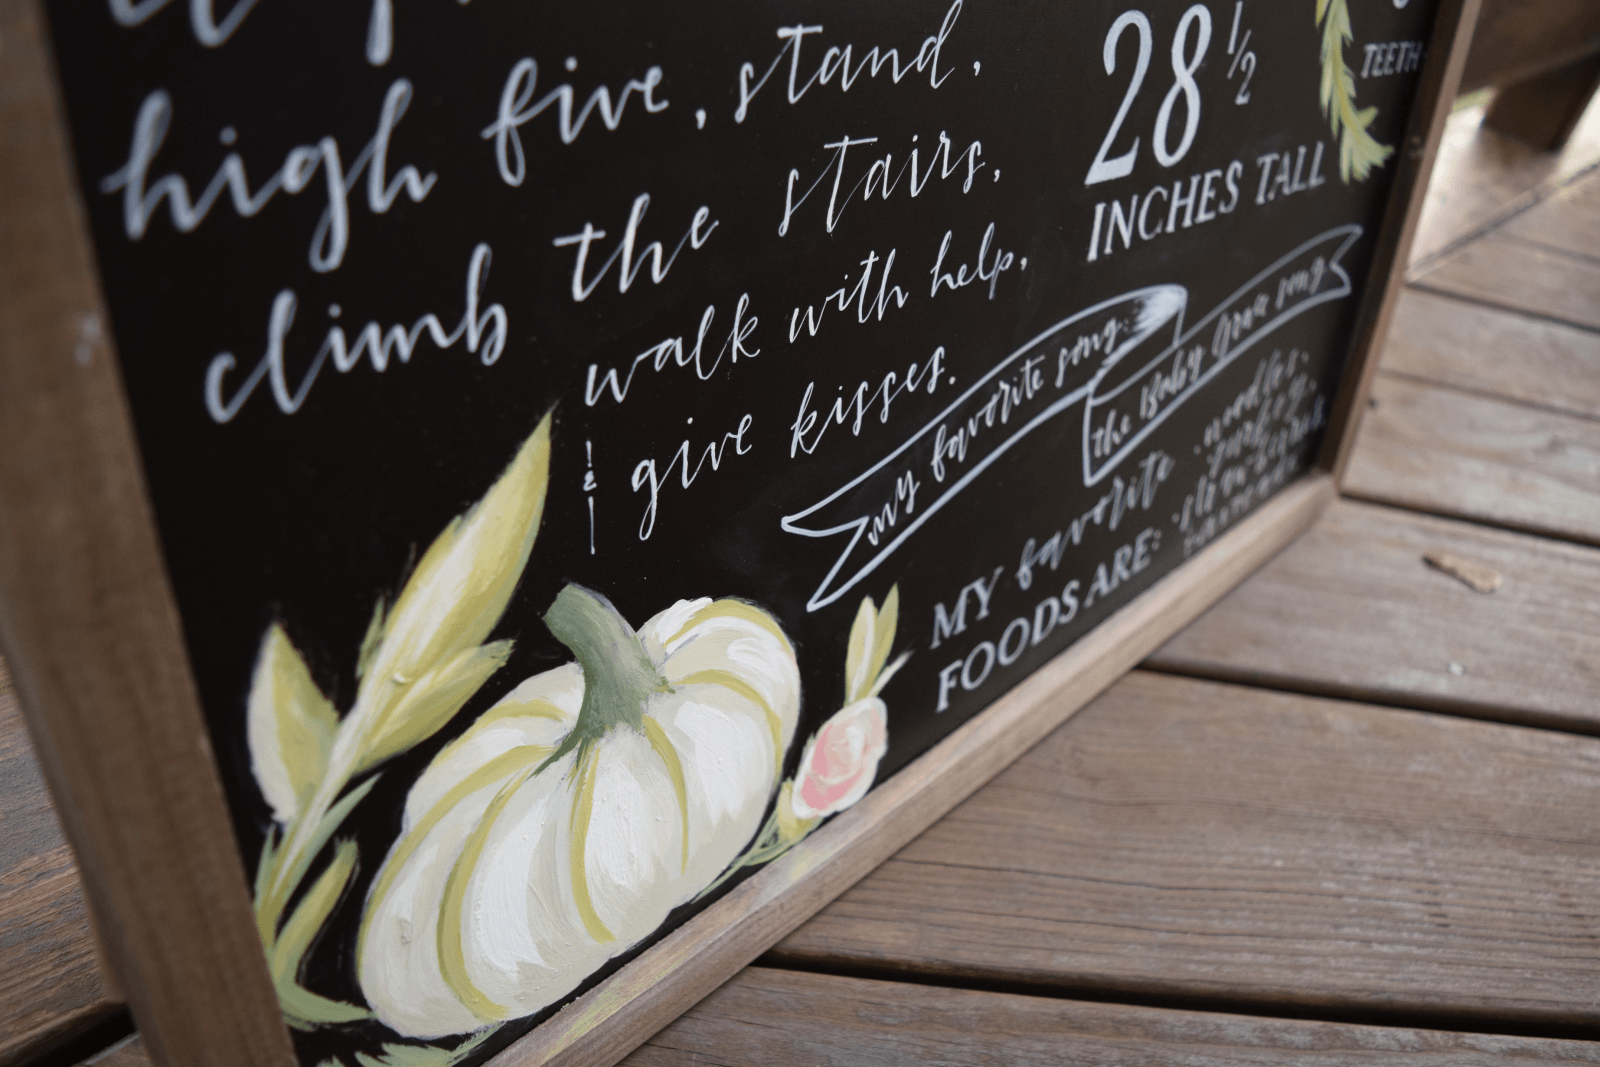 high five, stand,
climb the stairs,
walk with help,
& give kisses.
28 1/2
INCHES TALL
TEETH
my favorite song:
the Baby Grace song
MY favorite
FOODS ARE:
noodles,
turkey,